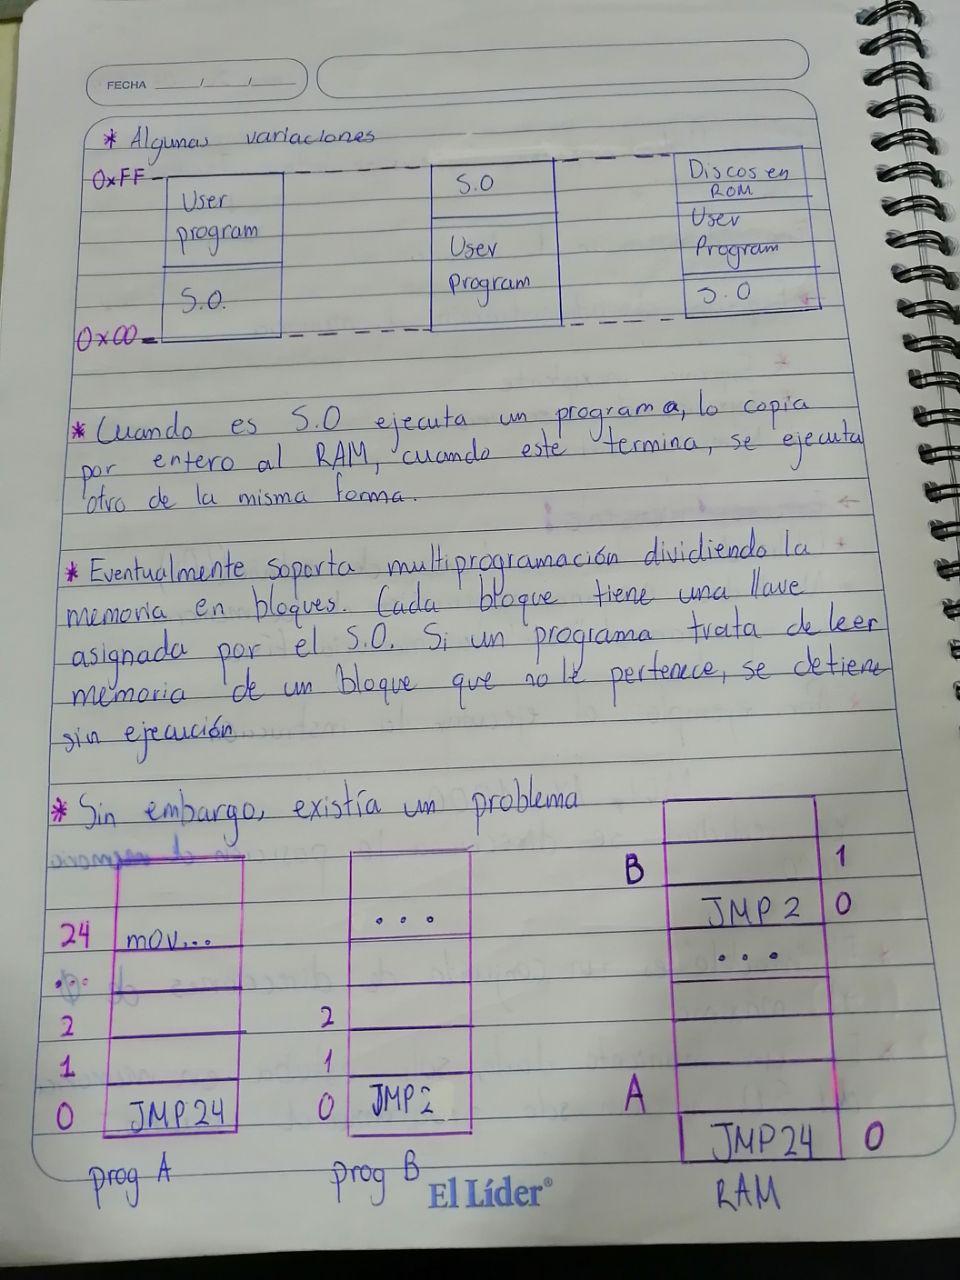 FECHA ___/___/___
* Algunas variaciones
0xFF
User
program
S.O.
0x00
S.O
User
program
Discos en
ROM
User
Program
S.O
* Cuando es S.O ejecuta un programa, lo copia
por entero al RAM, cuando este termina, se ejecuta
otro de la misma forma.
* Eventualmente soporta multiprogramación dividiendo la
memoria en bloques. Cada bloque tiene una llave
asignada por el S.O. Si un programa trata de leer
memoria de un bloque que no le pertenece, se detiene
sin ejecución
* Sin embargo, existía un problema
24 mov...
...
2
1
0 JMP 24
prog A
...
2
1
0 JMP 2
prog B
B 1
JMP 2 0
...
A
JMP 24 0
RAM
El Líder®